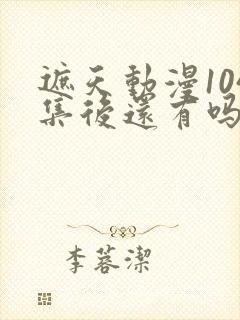 遮天動漫104
集後還有吗
李蓉潔